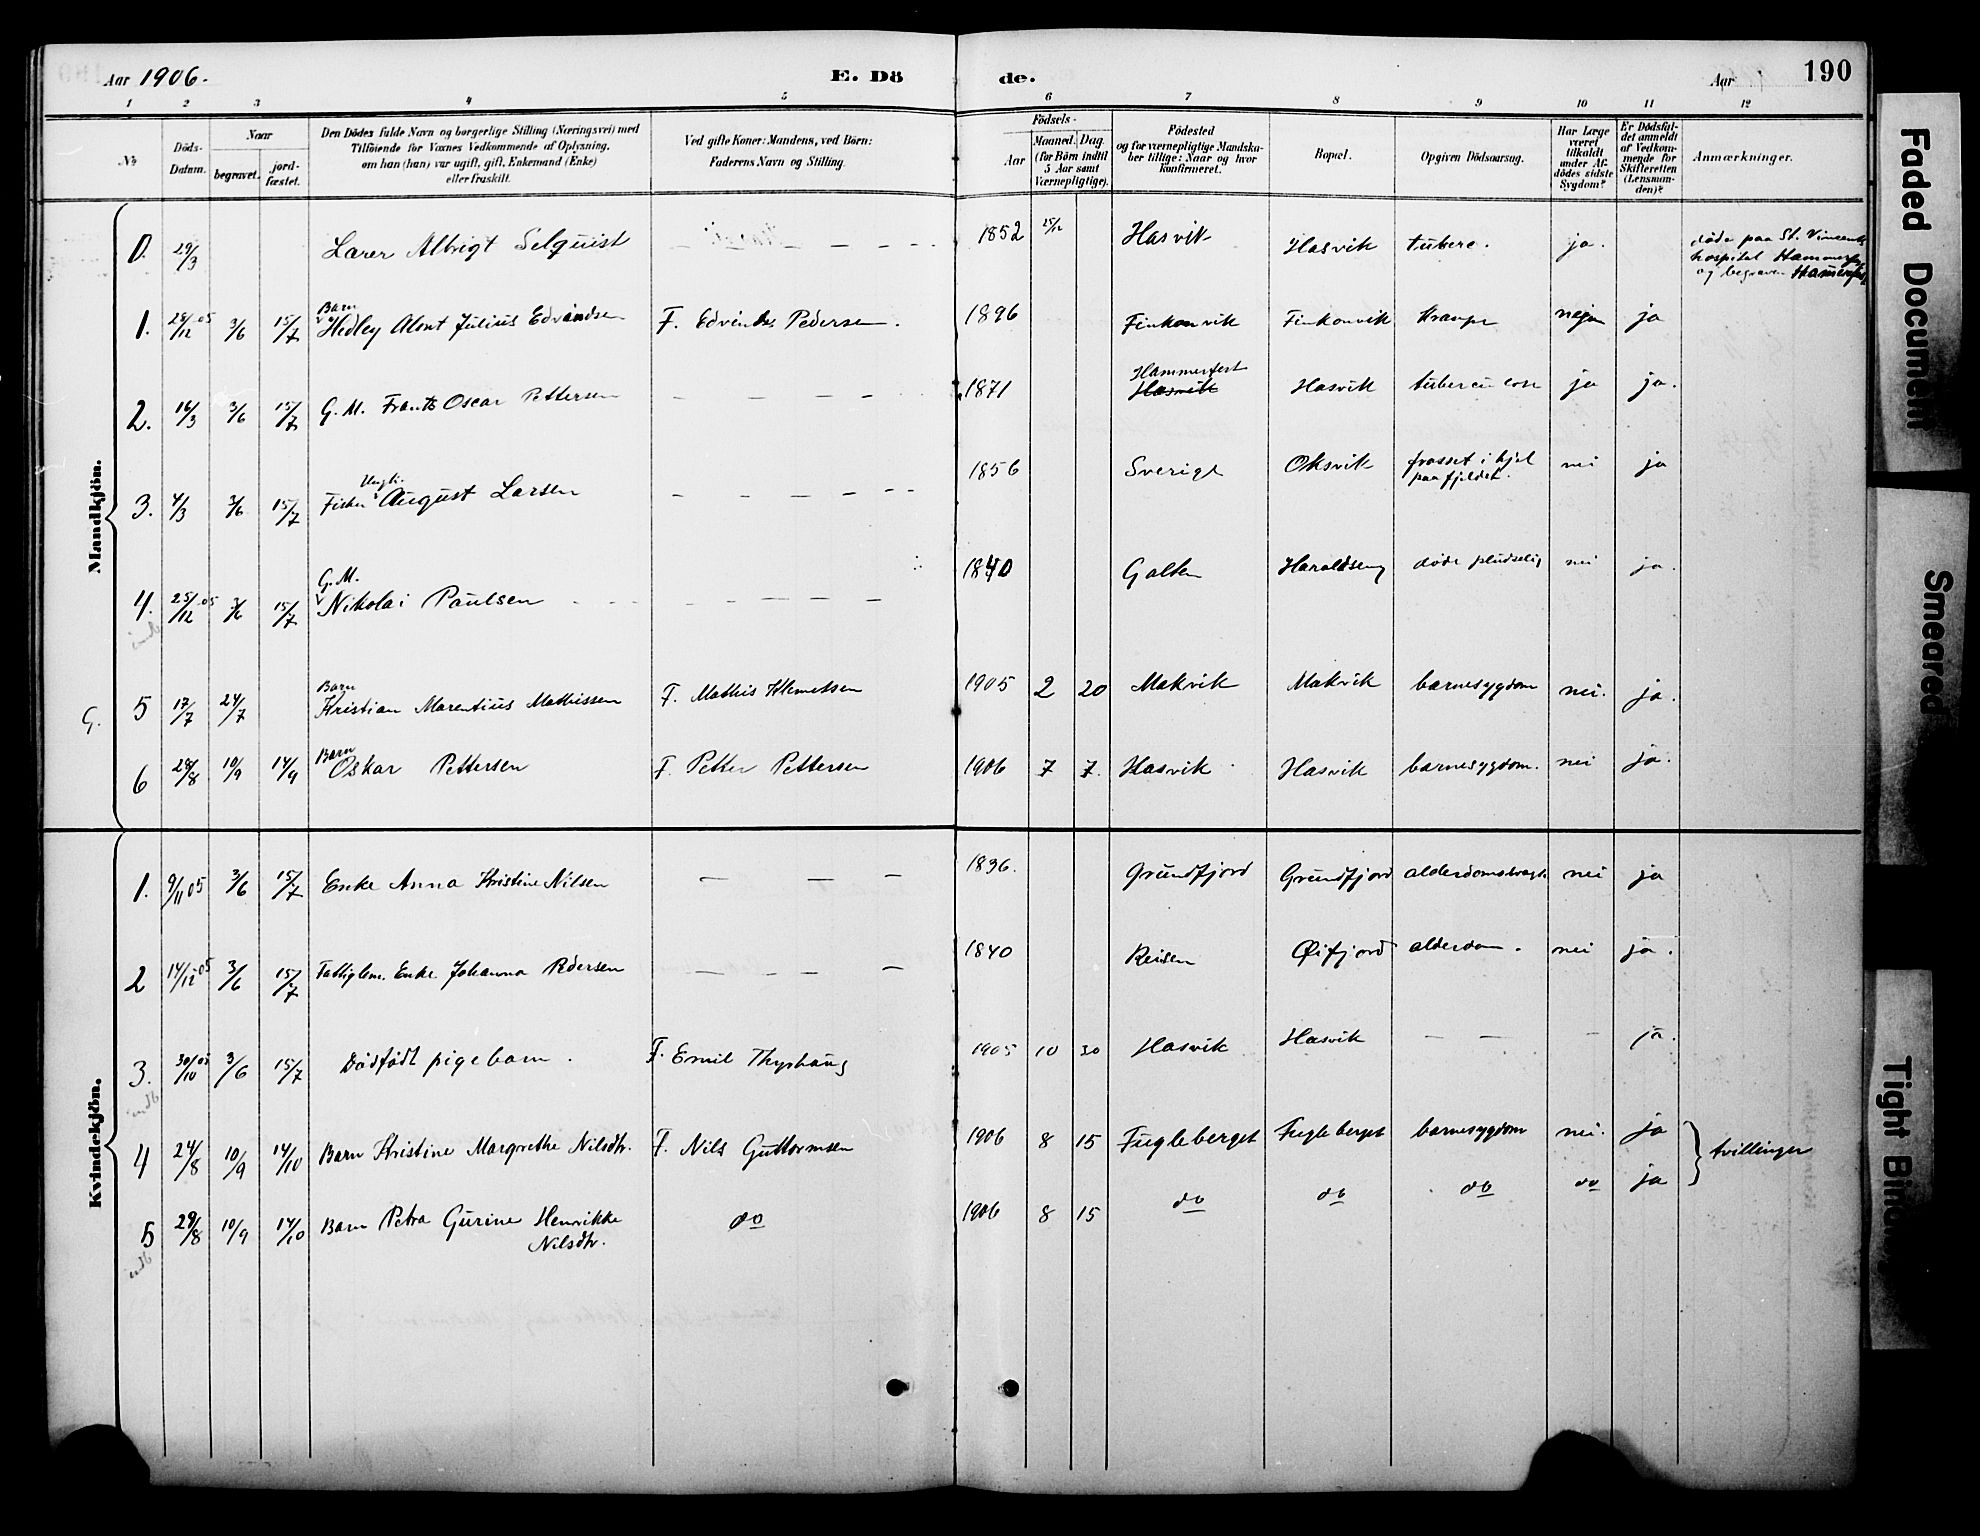 Aar 1906.
E. Dö
de.
Aar
190
1 2 3 4 5 6 7 8 9 10 11 12
No
Döds-Datum.
Naar
begravet.
jord-fæstet.
Den Dödes fulde Navn og borgerlige Stilling (Næringsvei) med
Tilföiende for Voxnes Vedkommende af Oplysning,
om han (hun) var ugift, gift, Enkemand (Enke)
eller fraskilt.
Ved gifte Koner: Mandens, ved Börn:
Faderens Navn og Stilling.
Födsels-
Aar
Maaned. Dag.
(for Börn indtil
5 Aar samt
Værnepligtige).
Födested
og for værnepligtige Mandska-
ber tillige: Naar og hvor
konfirmeret.
Bopæl.
Opgiven Dödsaarsag.
Har Læge
været
tilkaldt
under Af-
dödes sidste
Sygdom?
Er Dödsfal-
det anmeldt
af Vedkom-
mende for
Skifteretten
(Lensman-
den)?
Anmærkninger.
Mandkjön.
0. 29/3 Albrigt Selquist 1852 25/12 Hasvik Hasvik ja. døde paa St. Vincents
hospital Hammerfest
og begraven Hammerfest
Barn
1. 28/12 05 3/6 15/7 Hedley Julius Edvindsen F. Edvind Pedersen. 1896 Finkonvik Finkonvik Krampe ja
Hammerfest
2. 16/3 3/6 15/7 G. M. Frants Oscar Pettersen 1871 Hasvik Hasvik tuberculose ja ja.
Ungk.
3. 4/3 3/6 15/7 Fisker August Larsen 1856 Sverige Oksvik frosset i hjel
paa fjeldet. nei ja
G. M.
4. 25/12 05 3/6 15/7 Nikolai Paulsen 1840 Galten Haraldseng døde pludselig nei ja.
indb
Barn
G. 5 17/7 24/7 Kristian Marentius Mathissen F. Mathis Klemetsen 1905 2 20 Makvik Makvik barnesygdom nei. ja.
Barn
6 28/8 10/9 14/9 Oskar Pettersen F. Petter Pettersen 1906 7 7. Hasvik Hasvik barnesygdom. nei ja.
Kvindekjön.
1. 9/11 05 3/6 15/7 Enke Anna Kristine Nilsen 1836. Grundfjord Grundfjord nei ja
2 14/12 05 3/6 15/7 Fattiglem. Enke Johanna Pedersen 1840 Reisen Øifjord alderdom. nei ja.
3. 30/10 05 3/6 15/7 Dødfødt pigebarn. F. Emil Thyshaug 1905 10 30 Hasvik Hasvik ja.
indb
4 24/8 10/9 14/10 Barn Kristine Margrethe Nilsdtr. F. Nils Guttormsen 1906 8 15 Fugleberget Fugleberget barnesygdom nei. ja tvillinger
5 29/8 10/9 14/10 Barn Petra Gurine Henrikke
Nilsdtr. do 1906 8 15 do do do do ja
indb
Faded Document
Smeared
Tight